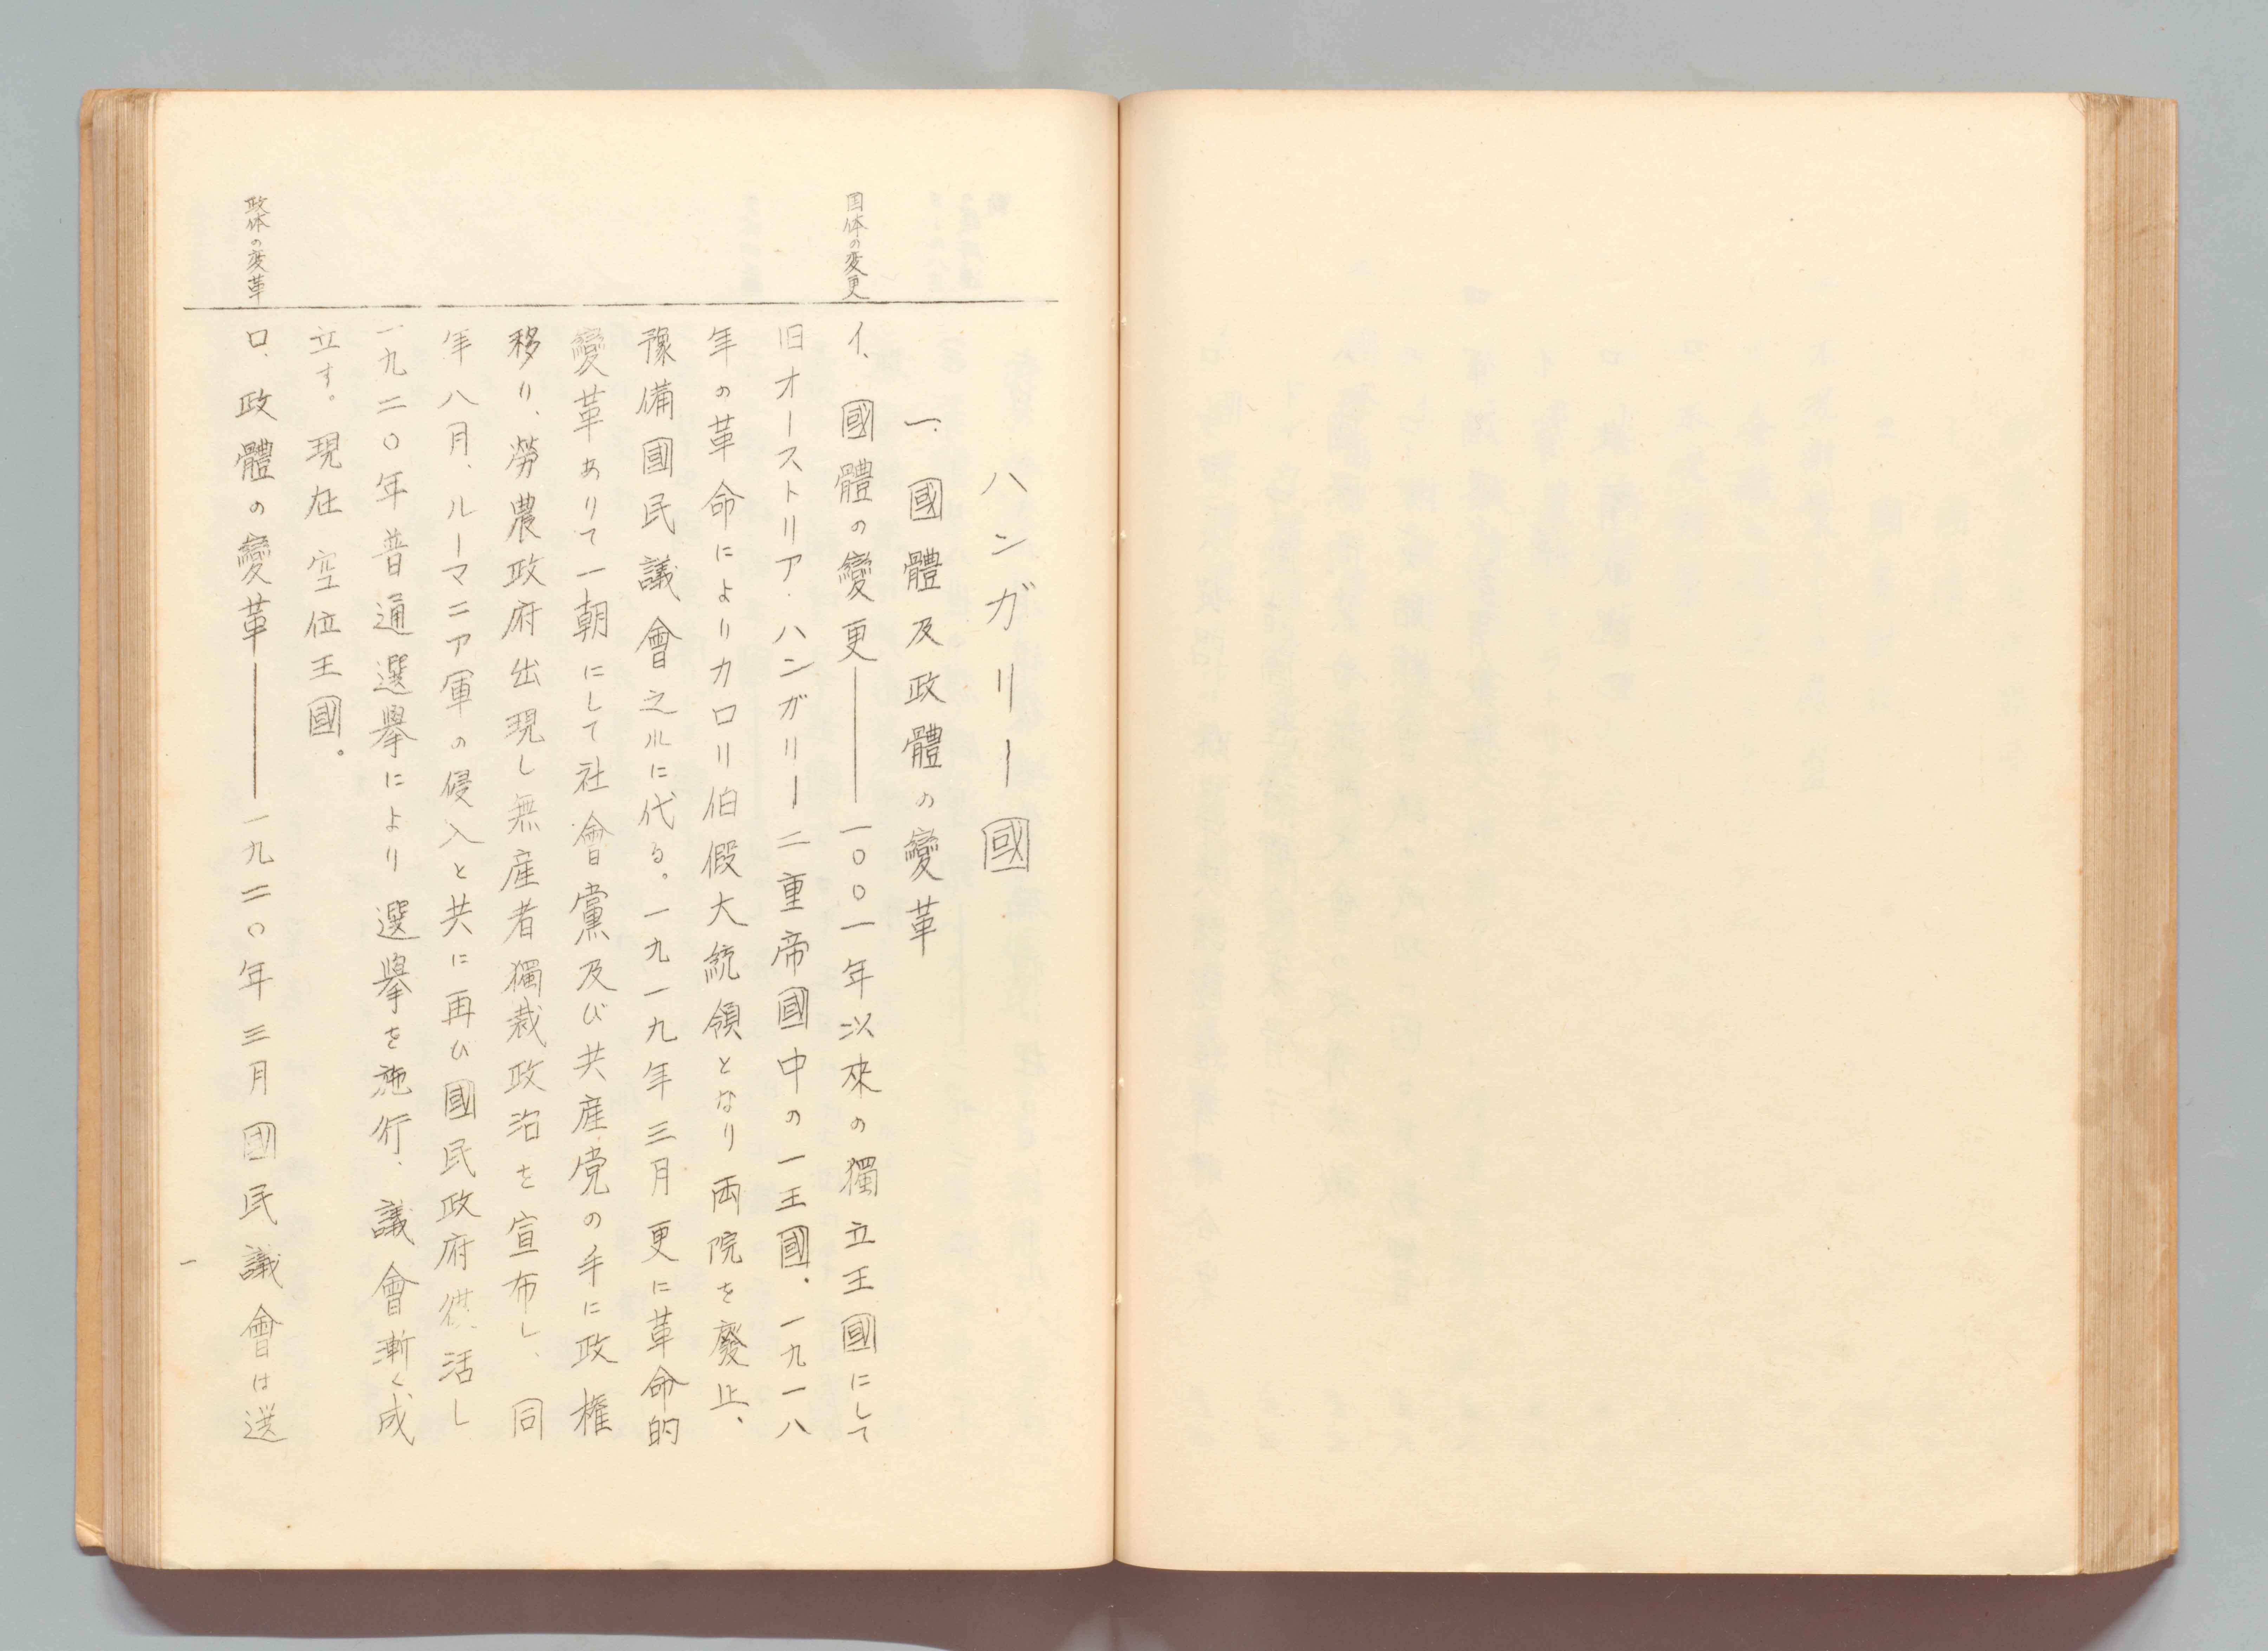 ハンガリー國
一、國體及政體の變革
国体の変更
イ、國體の變更――一〇〇一年以來の獨立王國にして
旧オーストリア・ハンガリー二重帝國中の一王國。一九一八
年の革命によりカロリ伯假大統領となり両院を廢止、
豫備國民議會之ルに代る。一九一九年三月更に革命的
變革ありて一朝にして社會黨及び共産党の手に政権
移り、勞農政府出現し無産者獨裁政治を宣布し、同
年八月、ルーマニア軍の侵入と共に再び國民政府活し
一九二〇年普通選擧により選擧を施行、議會漸く成
立す。現在空位王國。
政体の変革
ロ、政體の變革――一九二〇年三月國民議會は選
一